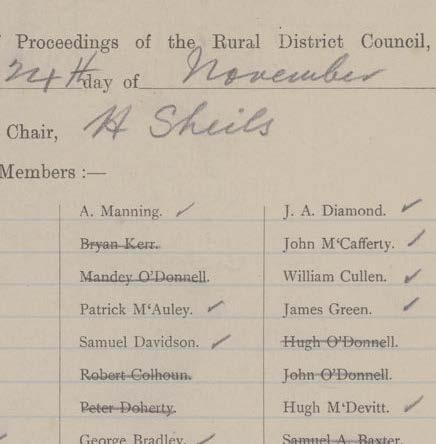 Proceedings of the Rural District Council,
24th day of November
Chair, H Sheils
Members :—
A. Manning. ✓ J. A. Diamond. ✓
Bryan Kerr. John M‘Cafferty. ✓
Mandey O’Donnell. William Cullen. ✓
Patrick M‘Auley. ✓ James Green. ✓
Samuel Davidson. ✓ Hugh O’Donnell.
Robert Colhoun. John O’Donnell.
Peter Doherty. Hugh M‘Devitt. ✓
George Bradley. ✓ Samuel A. Baxter.